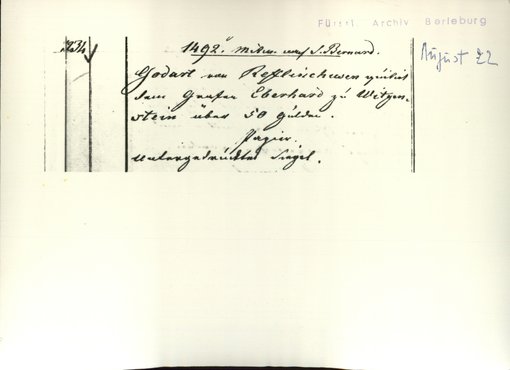 Fürstl Archiv Berleburg
August 22
1492. Mitw. nach S. Bernard.
Godart von quitirt
dem Grafen Eberhard zu Witgen-
stein über 50 Gulden.
Papier.
untergedrücktes Siegel.